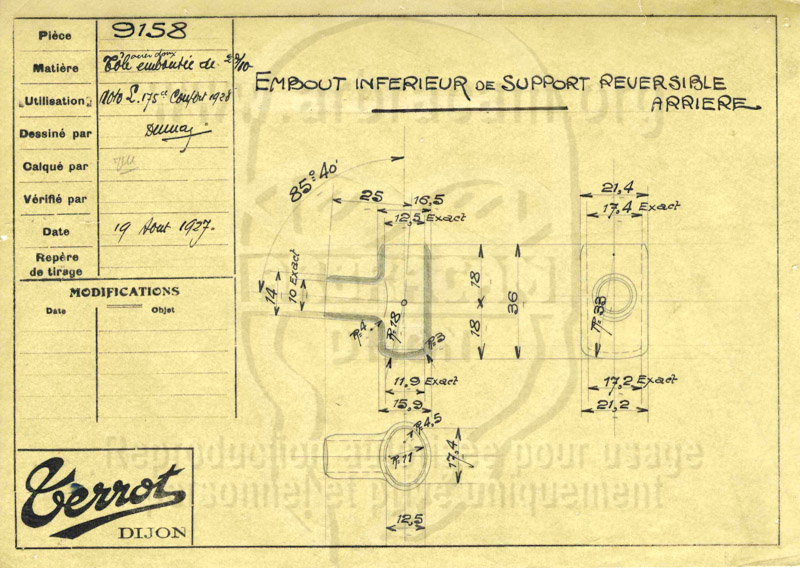 Pièce 9158
Matière Tôle emboutée de 20/10
"Utilisation" Moto L. 175cc Confort 1928
Dessiné par
Calqué par
Vérifié par
Date 19 Aout 1927.
Repère
de tirage
MODIFICATIONS
Date Objet
EMBOUT INFERIEUR DE SUPPORT REVERSIBLE
ARRIERE
85°40'
25 16,5
12,5 Exact
14
10 Exact
R.4
R.18
R.3
18
18
36
11,9 Exact
15,9
21,4
17,4 Exact
R.38
17,2 Exact
21,2
R.4,5
R.11
17,4
12,5
Terrot
DIJON
Reproduction autorisée pour usage
personnel et privé uniquement